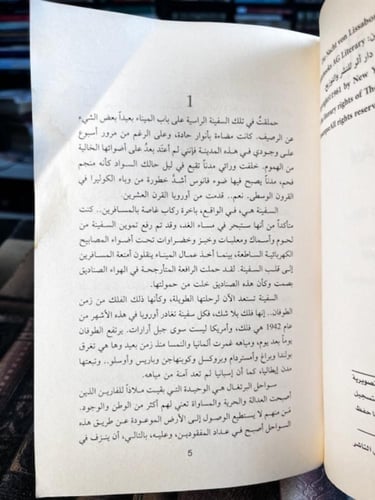 1
حملقتُ في تلك السفينة الراسية على باب الميناء بعيداً بعض الشيء
عن الرصيف. كانت مضاءة بأنوار حادة، وعلى الرغم من مرور أسبوع
على وجودي في هذه المدينة فإنني لم أعتد بعدُ على أضوائها الخالية
من الهموم. خلفت ورائي مدناً تقبع في ليل حالك السواد كأنه منجم
فحم، مدناً يصبح فيها ضوء فانوس أشدَّ خطورة من وباء الكوليرا في
القرون الوسطى. نعم.. قدمت من أوروبا القرن العشرين.
السفينة هي، في الواقع، باخرة ركاب غاصة بالمسافرين.. كنت
متأكداً من أنها ستبحر في مساء الغد، وقد تم رفع تموين السفينة من
لحوم وأسماك ومعلبات وخبز وخضراوات تحت أضواء المصابيح
الكهربائية الساطعة، بينما أخذ عمال الميناء ينقلون أمتعة المسافرين
إلى قلب السفينة. لقد حملت الرافعة المتأرجحة في الهواء الصناديق
بصمت وكأن هذه الصناديق خلت من حمولتها.
السفينة تستعد الآن لرحلتها الطويلة، وكأنها ذلك الفلك من زمن
الطوفان.. إنها فلك بلا شك، فكل سفينة تغادر أوروبا في هذه الأشهر من
عام 1942 هي فلك، وأمريكا ليست سوى جبل أرارات. يرتفع الطوفان
يوماً بعد يوم، ومياهه غمرت ألمانيا والنمسا منذ زمن بعيد وها هي تغرق
بولندا وبراغ وأمستردام وبروكسل وكوبنهاجن وباريس وأوسلو.. وتبعتها
مدن إيطاليا، كما أن إسبانيا لم تعد آمنة من مياهه.
سواحل البرتغال هي الوحيدة التي بقيت ملاذاً للفارين الذين
أصبحت العدالة والحرية والمساواة تعني لهم أكثر من الوطن والوجود.
مَن منهم لا يستطيع الوصول إلى الأرض الموعودة عن طريق هذه
السواحل أصبح في عداد المفقودين، وعليه، بالتالي، أن ينزف في
5
Nacht von Lissabon
AG Literary
1961 by New Y
literary rights of The
All rights reserve
دار أثر للنشر والتوزيع